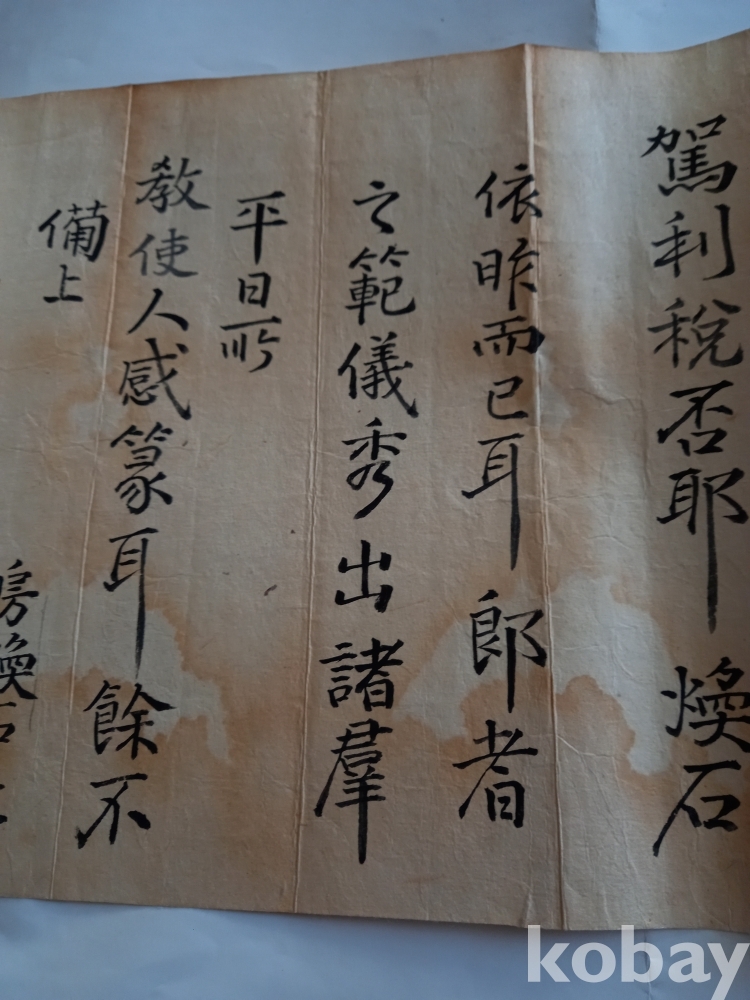 駕利稅否耶 煥石
依昨而已耳 郎者
之範儀秀出諸羣
平日所
教使人感篆耳餘不
備上
房煥石
kobay